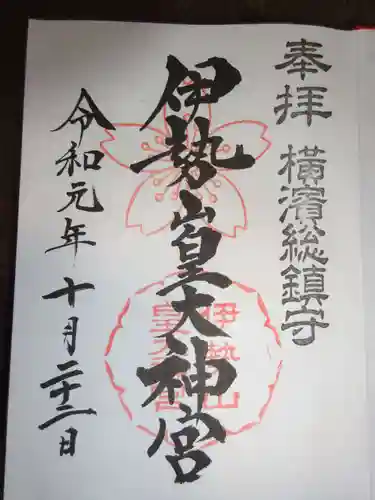 奉拝 横濱総鎮守
伊勢山皇大神宮
令和元年十月二十二日
伊勢山
皇大神宮